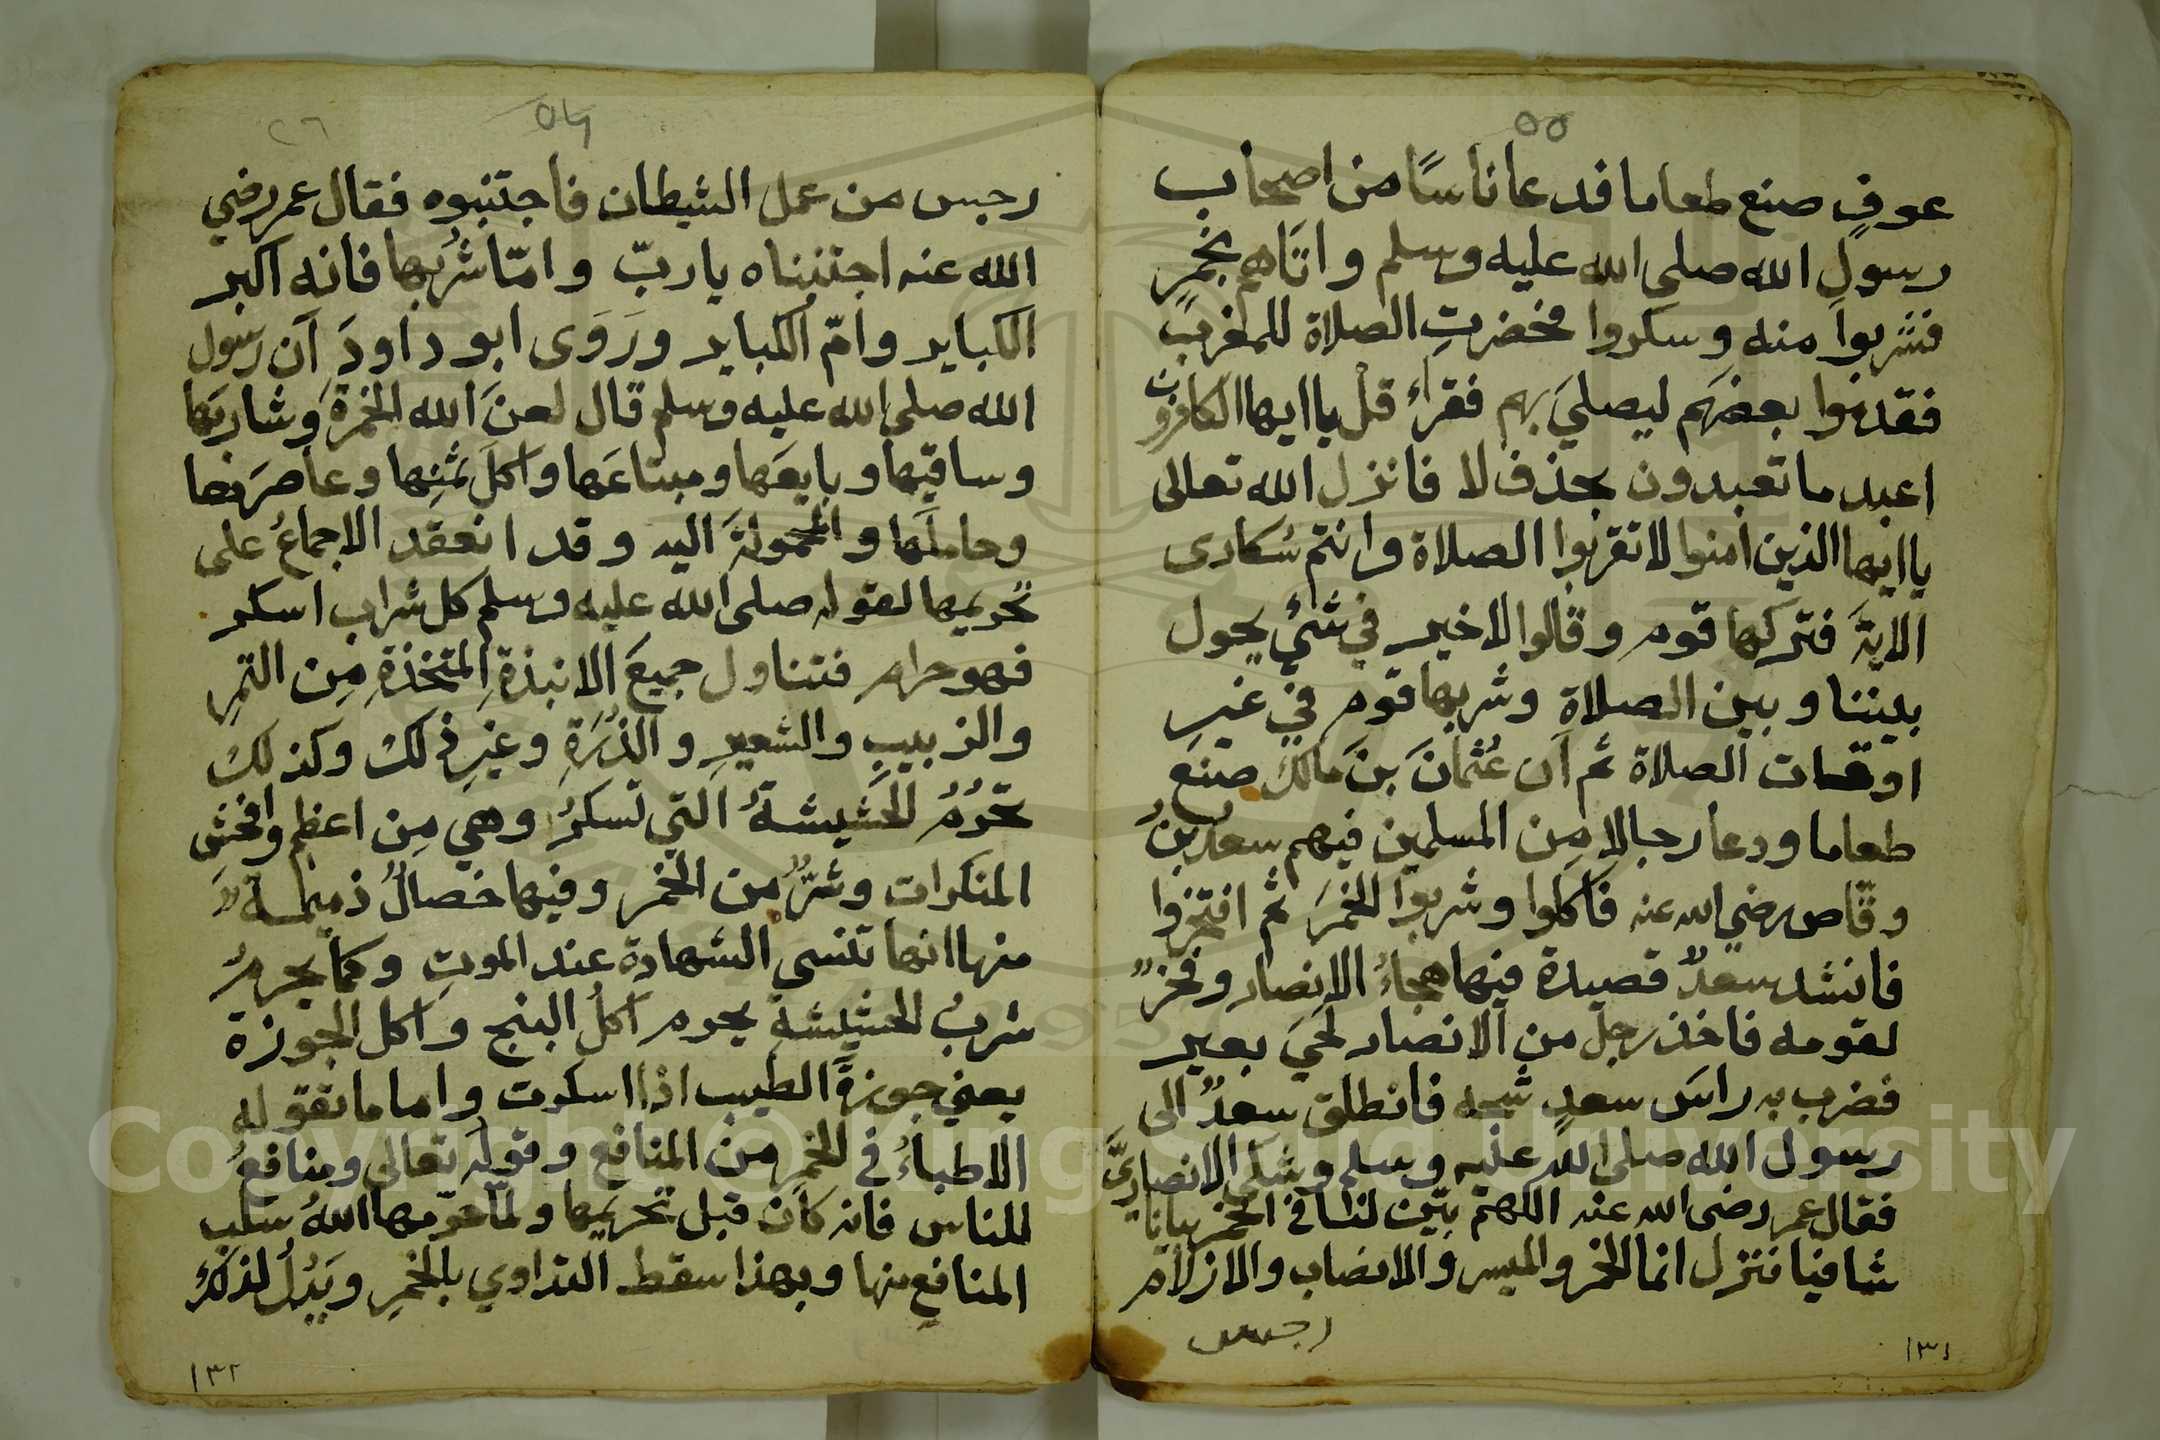 ٥٥
عوفٍ صنع طعاما فدعا ناسًا من اصحاب
رسولِ الله صلى الله عليه وسلم واتَاهم بخمرٍ
فشربوا منه وسكروا فحضرتِ الصلاة للمغرب
فقدموا بعضَهم ليصليَ بهم فقراء قلْ ياايها الكافرون
اعبد ما تعبدون بحذف لا فانزل الله تعالى
ياايها الذين امنوا لا تقربوا الصلاة وانتم سُكارى
الايةَ فتركها قوم وقالوا لاخير في شئٍ يحول
بيننا وبين الصلاة وشربها قوم في غيرِ
اوقات الصلاة ثم ان عُثمانَ بنَ مالك صنع
طعاما ودعا رجالا مِن المسلمين فيهم سعدُ بنُ
وقاص رضي الله عنه فاكلوا وشربوا الخمرَ ثم افتخروا
فانشد سعدٌ قصيدة فيها هجاءُ الانصار وفخرٌ
لقومه فاخذ رجل من الانصار لحيَ بعير
فضرب به راسَ سعدٍ شجه فانطلق سعدٌ الى
رسول الله صلى الله عليه وسلم وشكى الانصاريَّ
فقال عمر رضى الله عنه اللهمّ بيّن لنا في الخمر بيانا
شافيا فنزل انما الخمر والميسر والانصاب والازلام
رجس
١٣١
٥٦
٢٦
رجس من عمل الشيطان فاجتنبوه فقال عمر رضي
الله عنه اجتنبناه ياربّ وامّا شُربُها فانه اكبر
الكباير وامّ الكباير ورَوَى ابو داودَ ان رسول
الله صلى الله عليه وسلم قال لعنَ الله الخمرةَ وشاربَها
وساقيها وبايعَها ومبتاعَها واكلَ ثمنِها وعاصرَها
وحاملَها والمحمولةَ اليه وقد انعقد الاجماعُ على
تحريمها لقوله صلى الله عليه وسلم كل شراب اسكر
فهو حرام فتناول جميعَ الانبذةِ المتخذةِ مِن التمرِ
والزبيبِ والشعيرِ والذُرَةِ وغيرِ ذلك وكذلك
تحرُمُ الحشيشةُ التي تسكرُ وهي مِن اعظم وافحش
المنكرات وشرٌّ من الخمر وفيها خصالٌ ذميمة
منها انها تنسي الشهادة عند الموتِ وكما يحرمُ
شربُ الحشيشة يحرم اكلُ البنج واكل الجوزة
يعني جوزةَ الطيب اذا اسكرت واما ما تقوله
الاطباءُ في الخمرِ من المنافع وقوله تعالى ومنافعُ
للناس فانه كان قبل تحريمها ولما حرّمها اللهُ سلب
المنافع منها وبهذا سقط التداوي بالخمرِ ويَدُلُ لذلك
١٣٢
Copyright © King Saud University